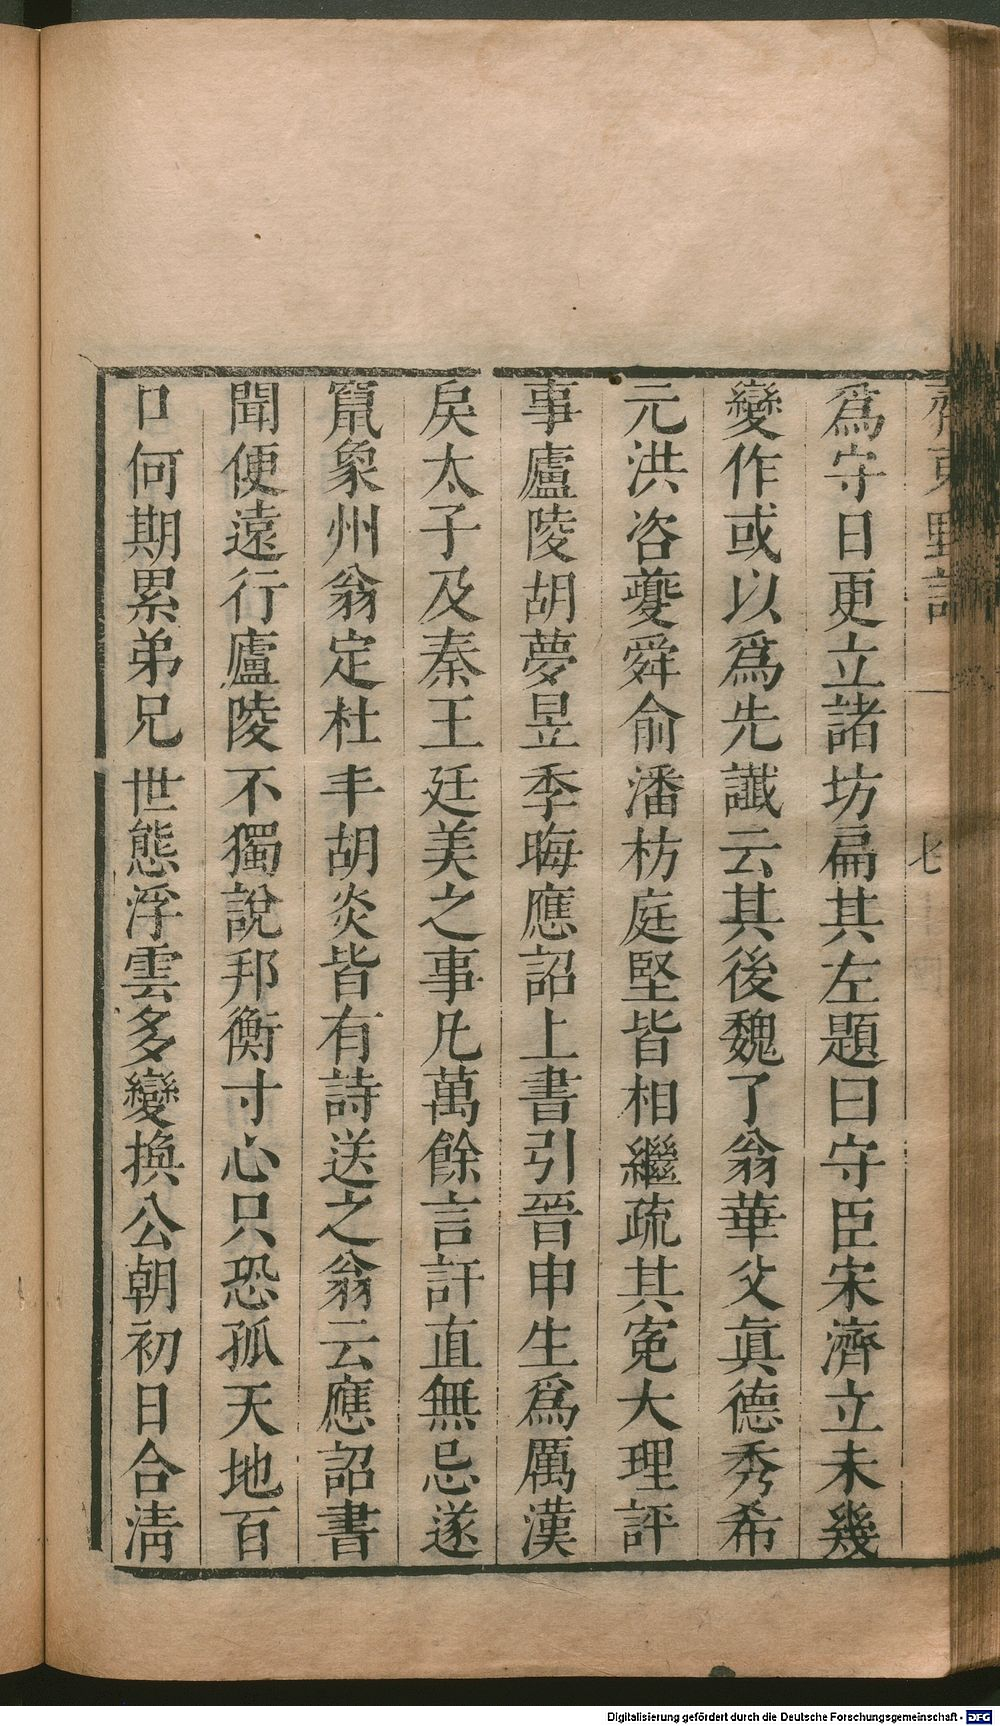 齊東野語 一 七
爲守日更立諸坊扁其左題曰守臣宋濟立未幾
變作或以爲先讖云其後魏了翁華父眞德秀希
元洪咨夔舜俞潘枋庭堅皆相繼疏其寃大理評
事廬陵胡夢昱季晦應詔上書引晉申生爲厲漢
戾太子及秦王廷美之事凡萬餘言訐直無忌遂
竄象州翁定杜丰胡炎皆有詩送之翁云應詔書
聞便遠行廬陵不獨說邦衡寸心只恐孤天地百
口何期累弟兄世態浮雲多變換公朝初日合淸
Digitalisierung gefördert durch die Deutsche Forschungsgemeinschaft - DFG